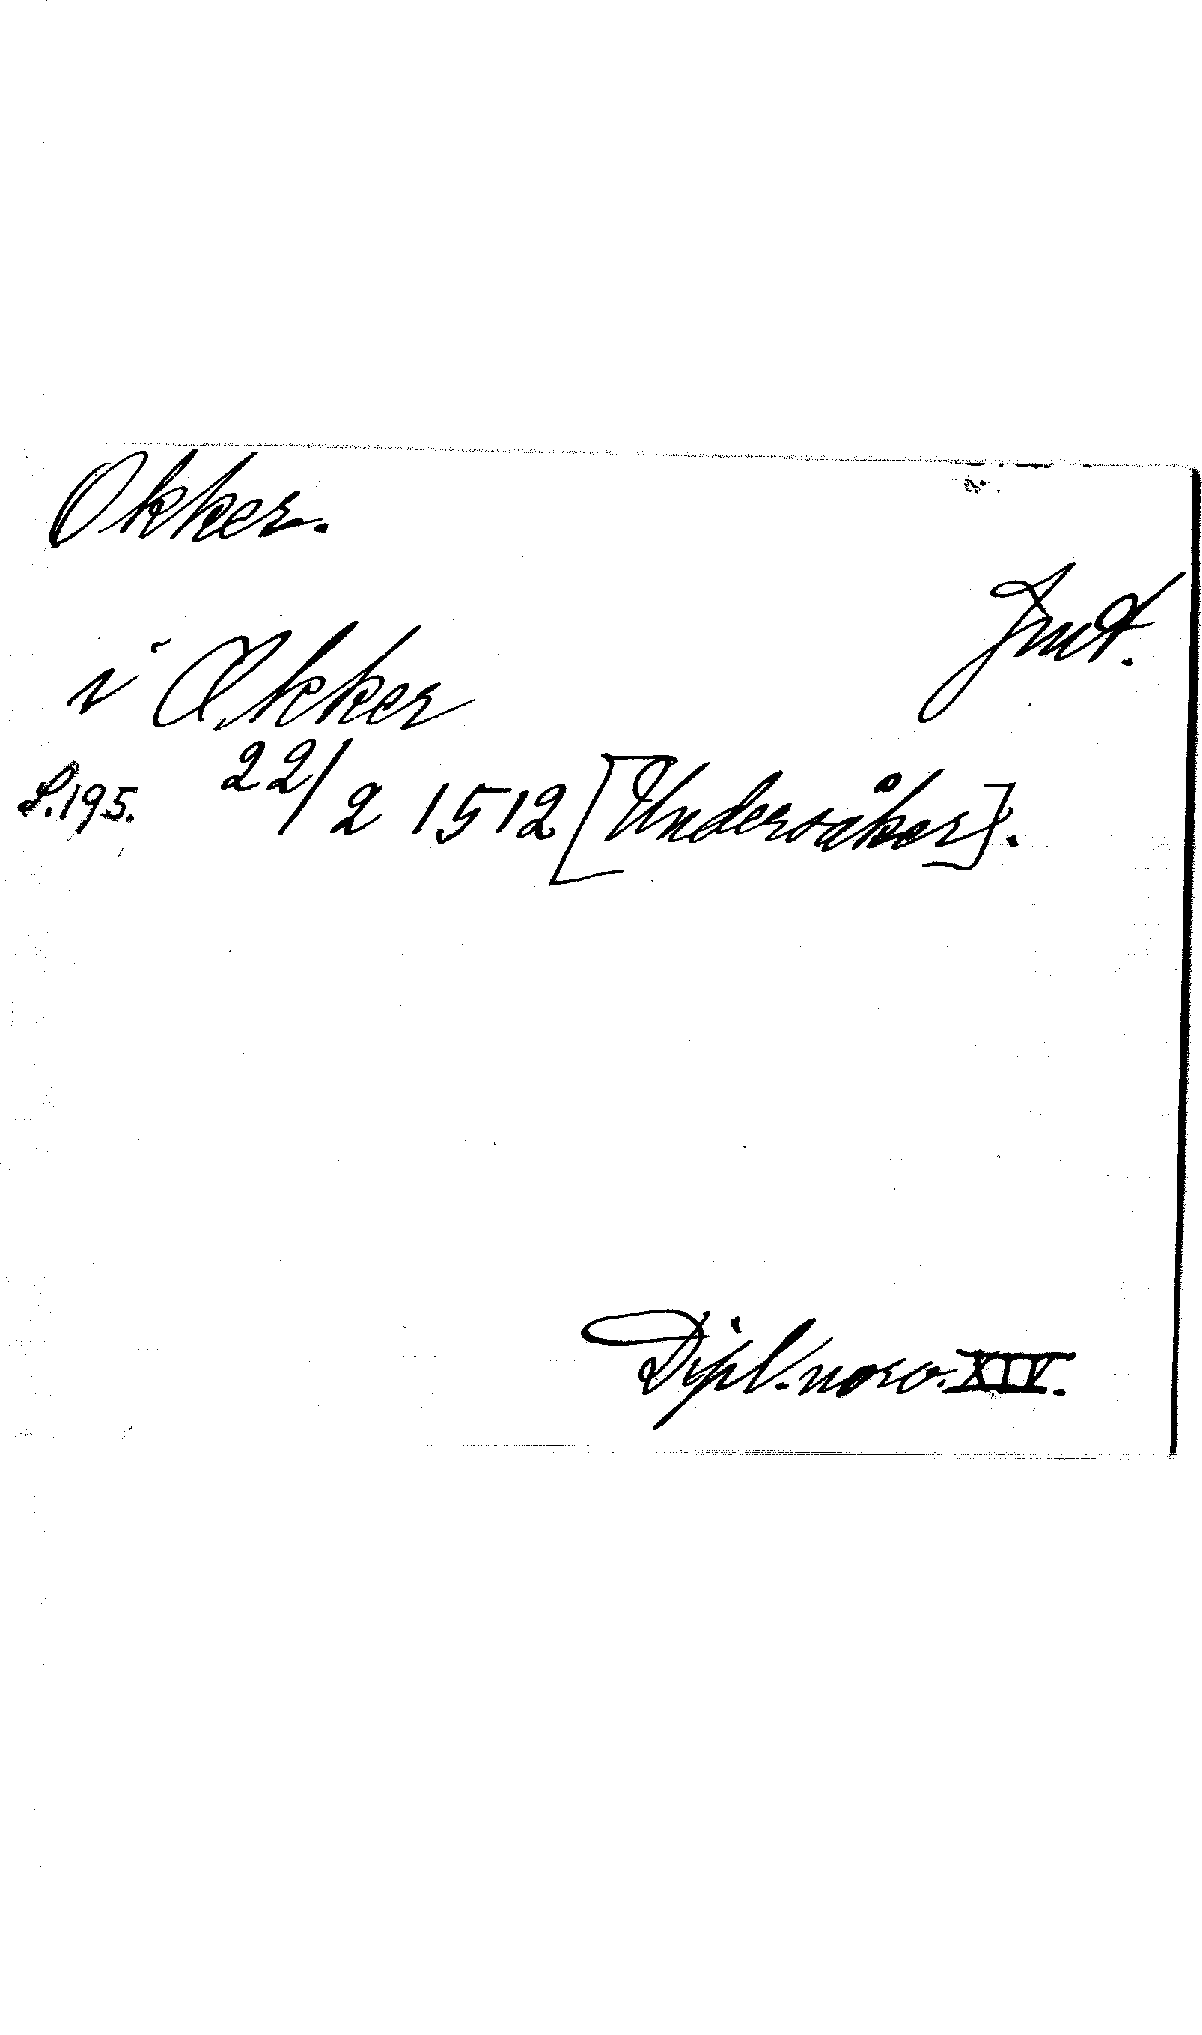 Okker.
Jmt.
i Økker
S.195. 22/2 1512 [Undersåker].
Dipl. norv. XIV.